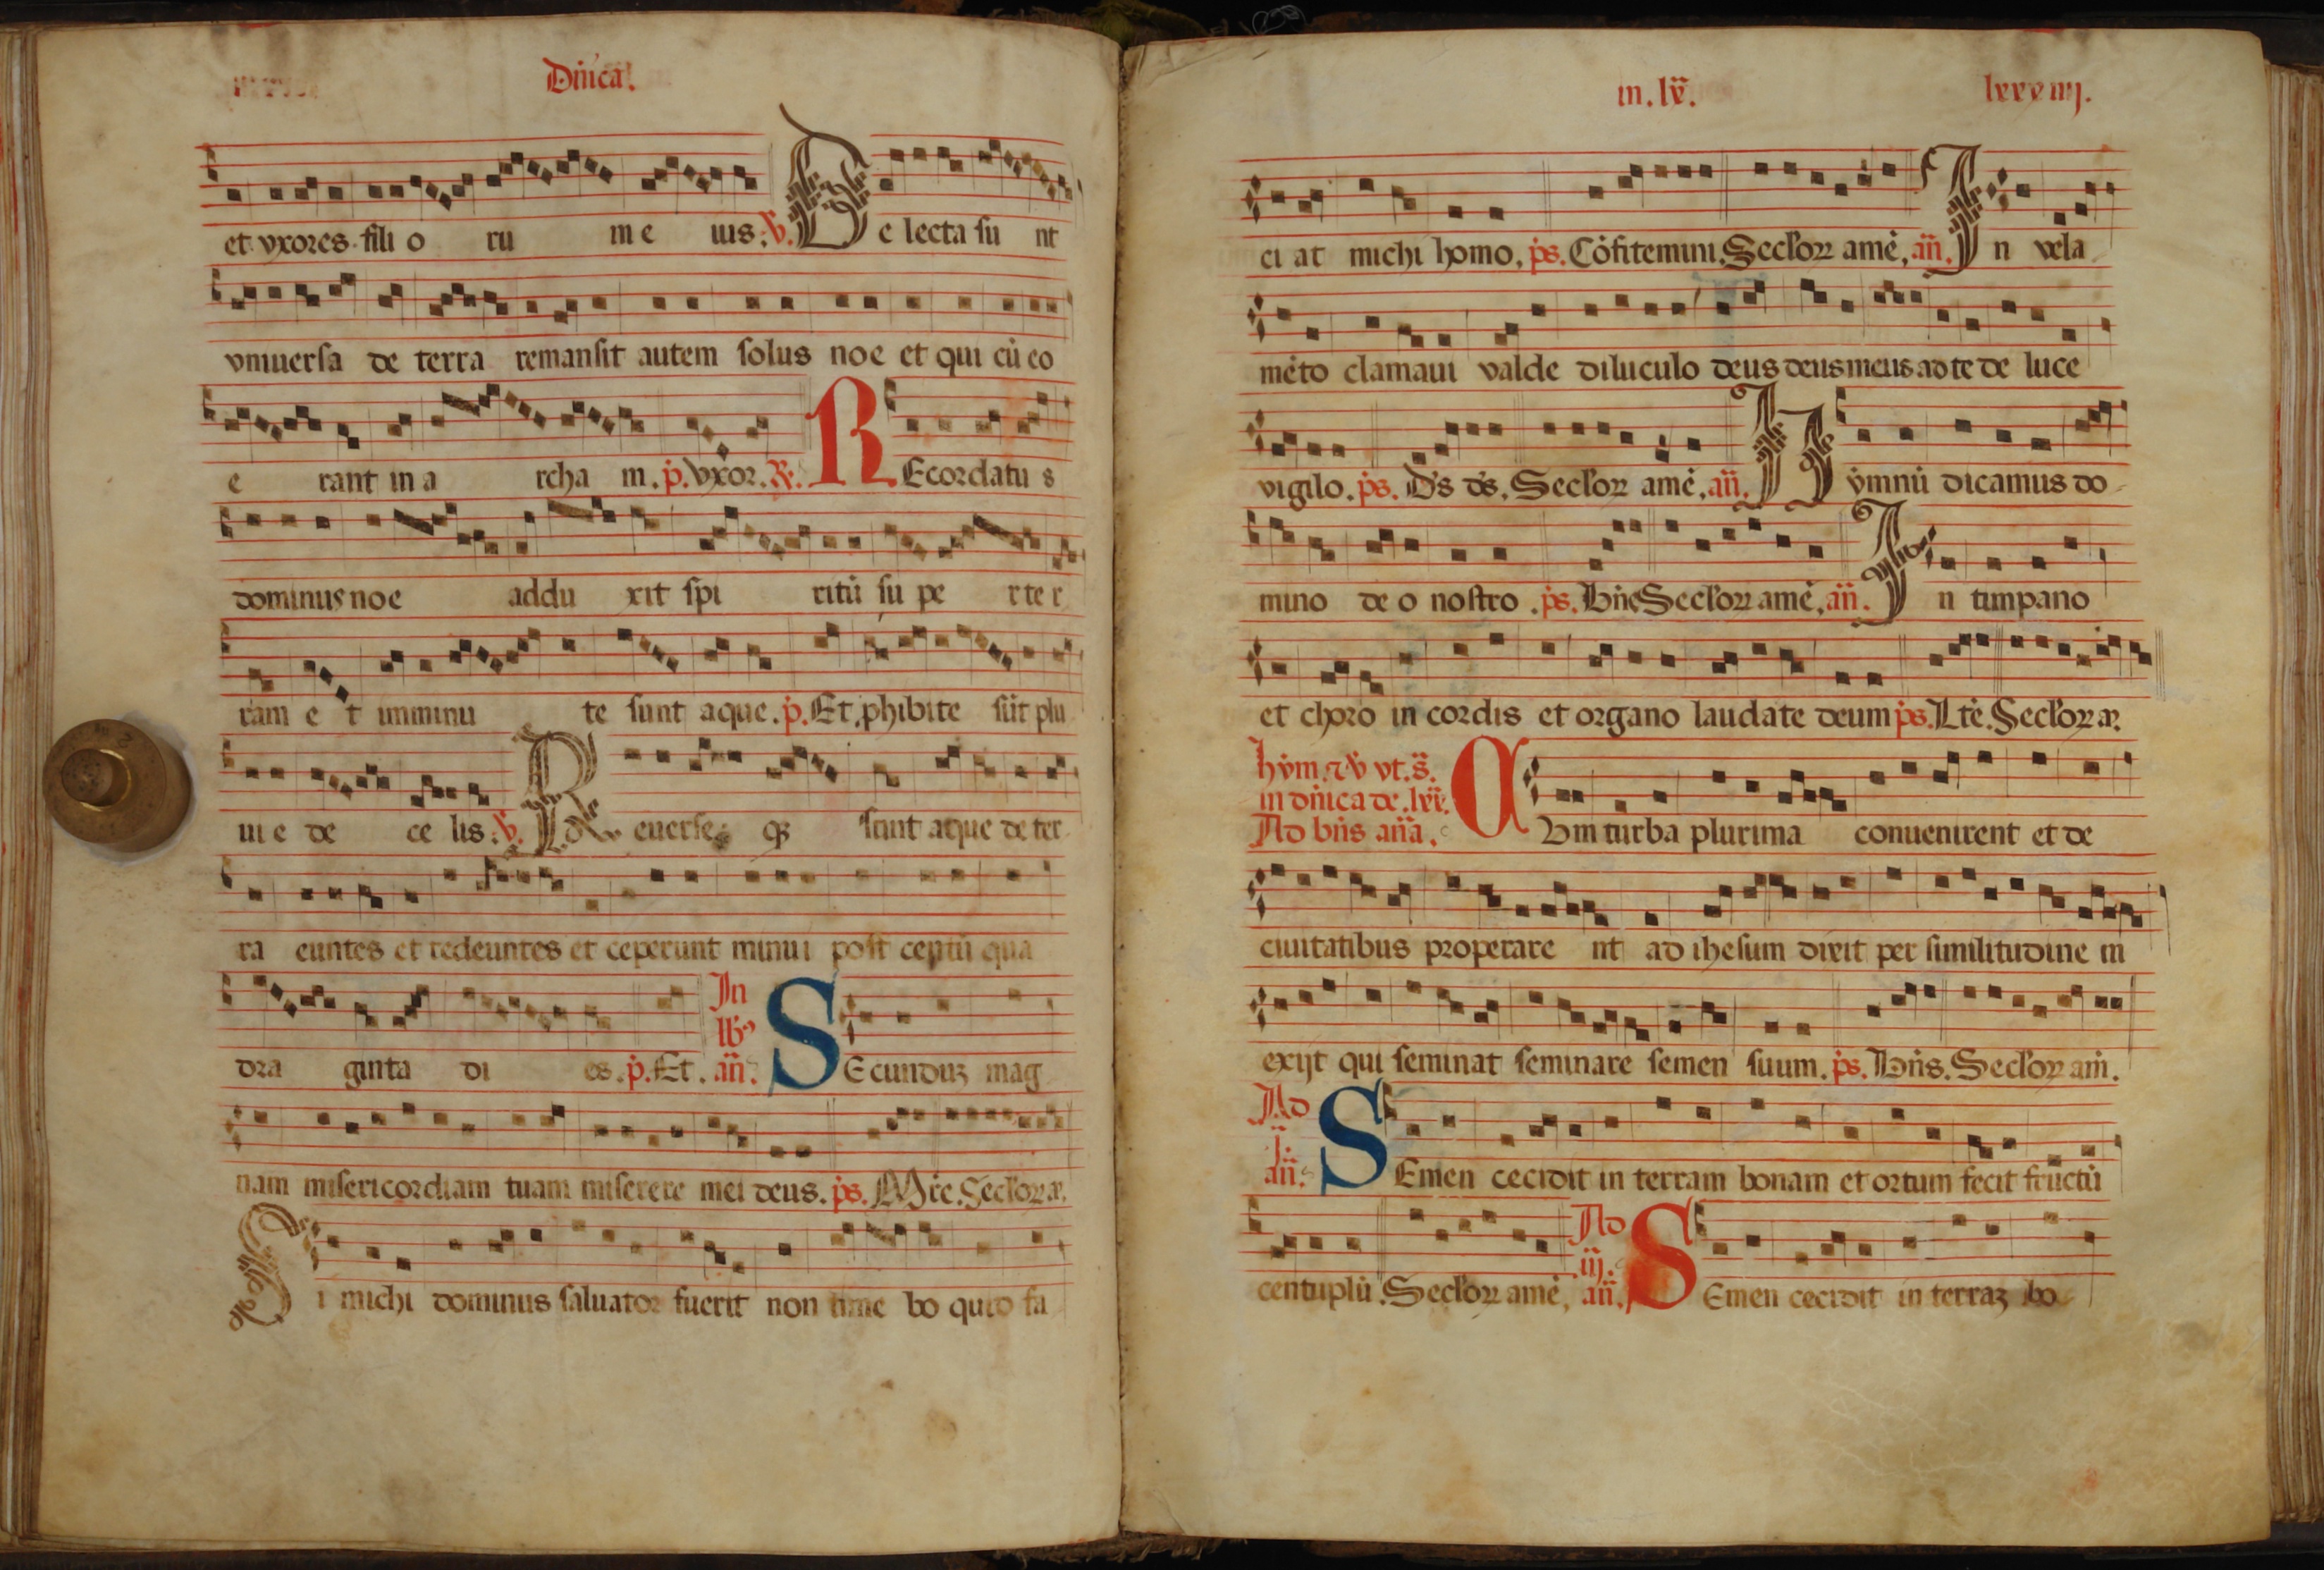 Dn̄ica.
et vxores filio ru me us. v. De lecta su nt
vniuersa de terra remansit autem solus noe et qui cū eo
e rant in a rcha m. p. vxor. R. REcordatu s
dominus noe addu xit spi ritū su pe rte r
ram e t imminu te sunt aque. p. Et phibite sūt plu
ui e de ce lis. v. Reuerse qz sunt aque de ter
ra euntes et redeuntes et ceperunt minui post centū qua
dra ginta di es. p. Et. In lb9 an̄. SEcunduz mag
nam misericordiam tuam miserere mei deus. ps. Mīe. Seclorꝝ a.
Si michi dominus saluator fuerit non time bo quid fa
in. lx̄.
lxxxiiij.
ci at michi homo. ps. Cōfitemini. Seclorꝝ amē. an̄. In vela
mēto clamaui valde diluculo deus deus meus ad te de luce
vigilo. ps. Ds ds. Seclorꝝ amē. an̄. Hymnū dicamus do
mino de o nostro. ps. Bn̄e Seclorꝝ amē. an̄. In timpano
et choro in cordis et organo laudate deum ps. Ltē. Seclorꝝ a.
hym. ⁊ v̄ vt. s̄.
in dn̄ica de. lxx̄.
Ad bn̄s an̄a. CVm turba plurima conuenirent et de
ciuitatibus properare nt ad ihesum dixit per similitudine m
exijt qui seminat seminare semen suum. ps. Bn̄s. Seclorꝝ am̄.
Ad j. an̄. SEmen cecidit in terram bonam et ortum fecit fructū
centuplū. Seclorꝝ amē. Ad iij. an̄. SEmen cecidit in terraz bo